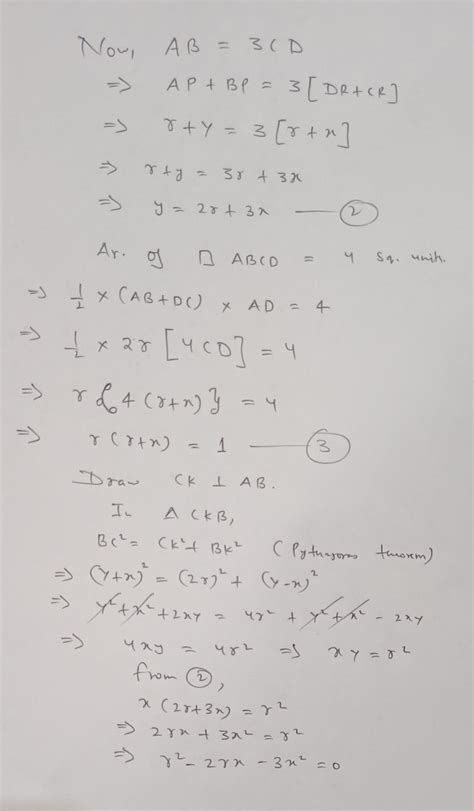 Now, AB = 3CD
=> AP + BP = 3[DR+CR]
=> r+y = 3[r+x]
=> r+y = 3r + 3x
=> y = 2r + 3x — ②
Ar. of □ ABCD = 4 sq. unit.
=> 1/2 × (AB+DC) × AD = 4
=> 1/2 × 2r [4CD] = 4
=> r{4(r+x)} = 4
=> r(r+x) = 1 — ③
Draw CK ⊥ AB.
In Δ CKB,
BC² = CK² + BK² (Pythagoras theorem)
=> (y+x)² = (2r)² + (y-x)²
=> y² + x² + 2xy = 4r² + y² + x² - 2xy
=> 4xy = 4r² => xy = r²
from ②,
x(2r+3x) = r²
=> 2rx + 3x² = r²
=> r² - 2rx - 3x² = 0